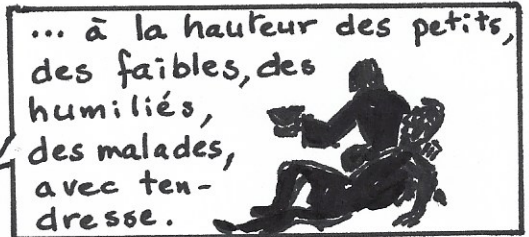 ... à la hauteur des petits,
des faibles, des
humiliés,
des malades,
avec ten-
dresse.